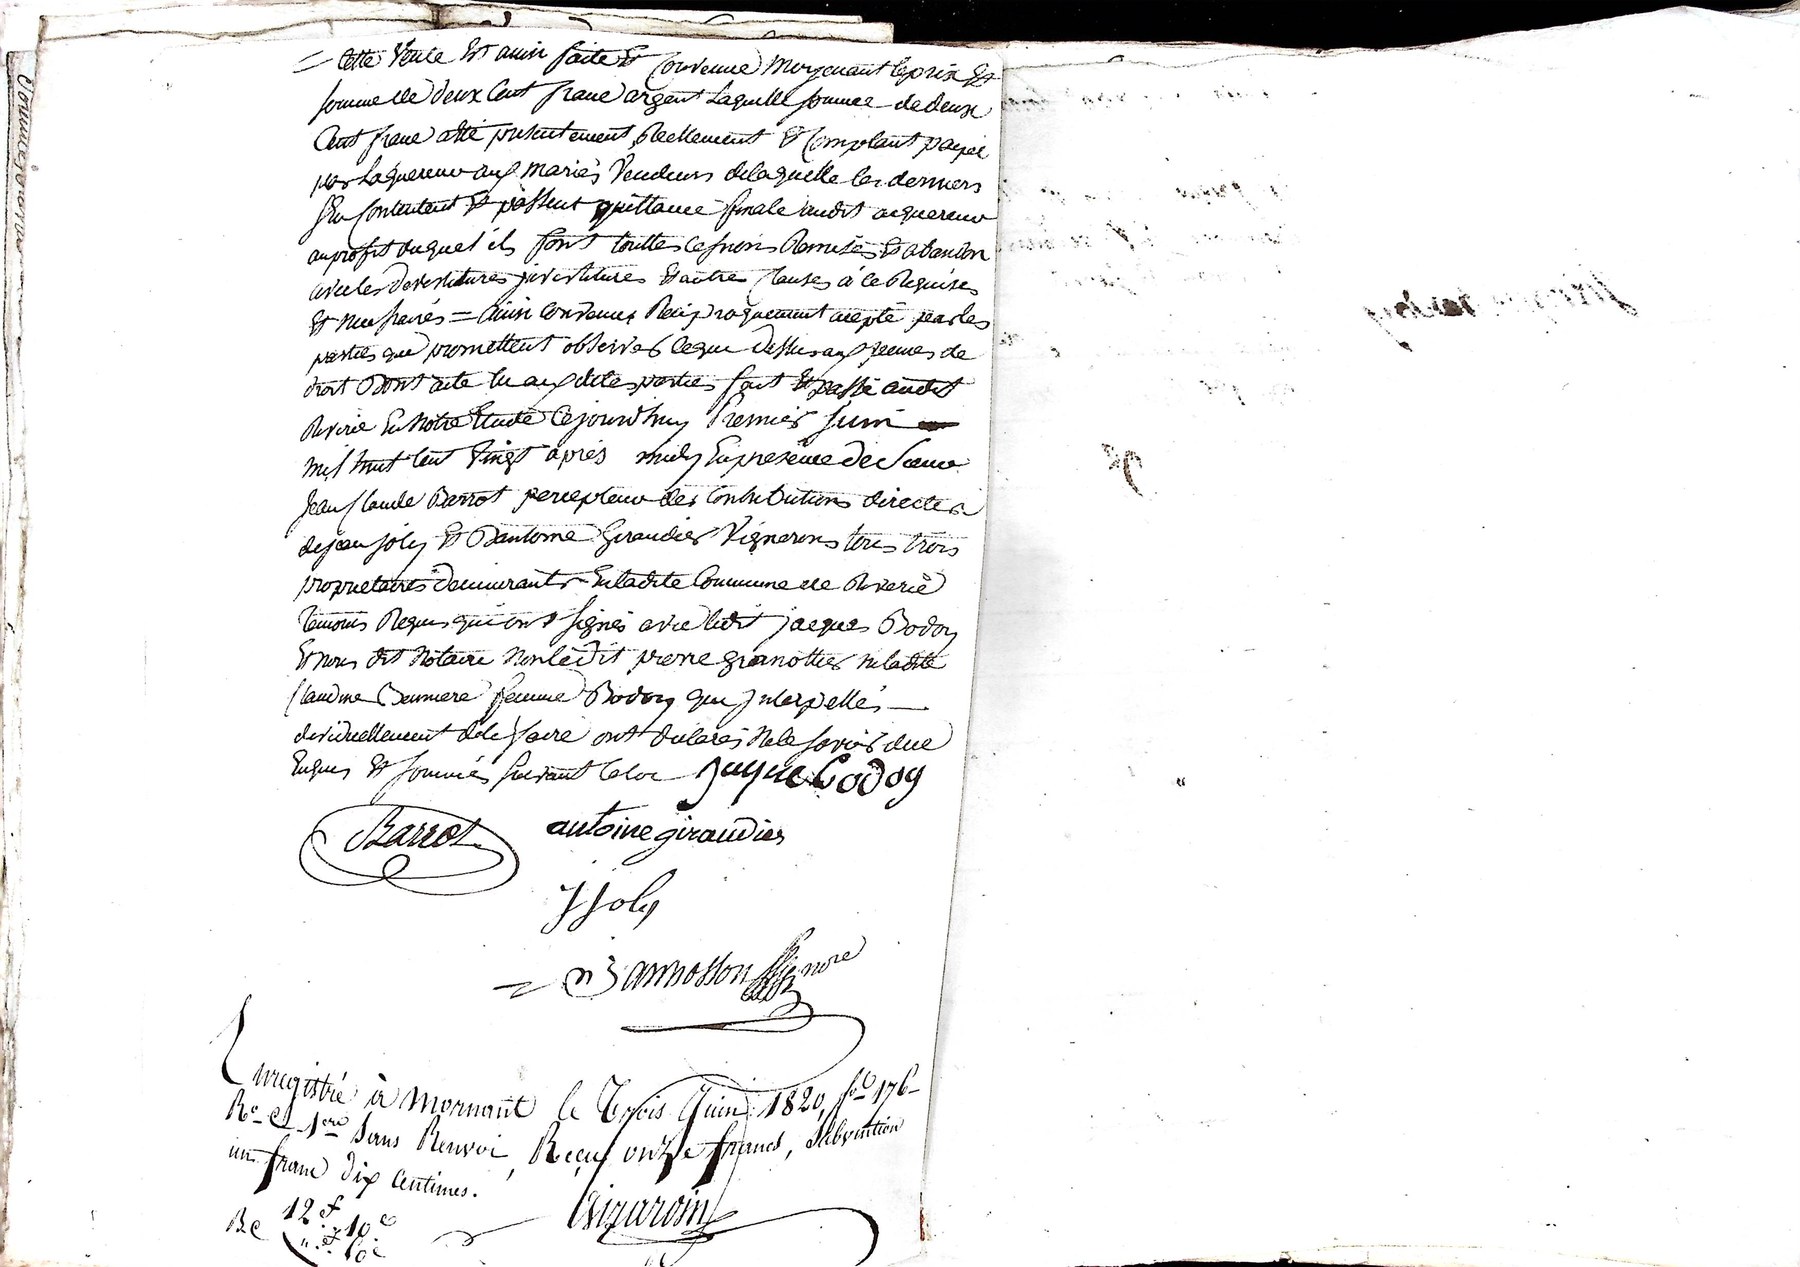 = Cette Vente Est ainsi faite Et Convenue Moyenant le prix Et
somme de deux Cent franc argent Laquelle somme de deux
Cent franc a été présentement, Réellement Et Comptant payée
par Laquereur aux mariés Vendeurs de laquelle les derniers
s'en Contentent Et passent quittance finale audit aquereur
au profit duquel ils font touttes cessions Remises Et abandon
avec les devestitures investitures Et autres Clauses à ce Requises
Et necessaires = Ainsi Convenu Reciproquement accepté par les
parties qui promettent observer ce que dessus aux peines de
droit Dont acte lu aux dites parties fait Et passé audit
Riverie En Notre Etude Cejourdhuy Premier Juin
mil huit Cent Vingt après midy En présence de Sieur
Jean Claude Barrot percepteur des Contributions directes
de jean joly Et Dantoine Giraudier Vignerons tous trois
proprietaires demeurants En ladite Commune de Riverie
temoins Requis qui ont signés avec ledit jacques Bodoy
Et nous dit Notaire Non ledit pierre granottier ni ladite
Claudine femme Bodoy qui Interpellés
dividuellement de le faire ont déclarés Ne le savoir due
Enquis Et sommés suivant la loi Jaque bodoy
Barrot antoine giraudier
J Joly
=
Enregistré à Mornant le Trois Juin 1820, fo 176
Ro C 1ere sans Renvoi, Reçu onze francs, subvention
un franc dix Centimes.
12 f 10 c